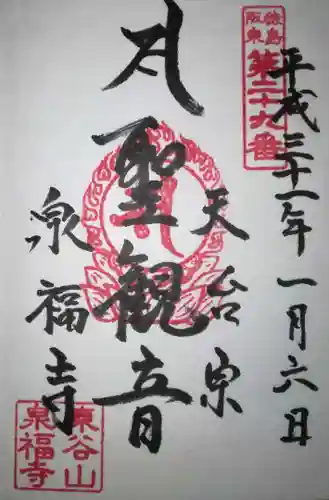 徳島
阪東
第二十九番
平成三十一年一月六日
天台宗
聖観音
泉福寺
東谷山
泉福寺